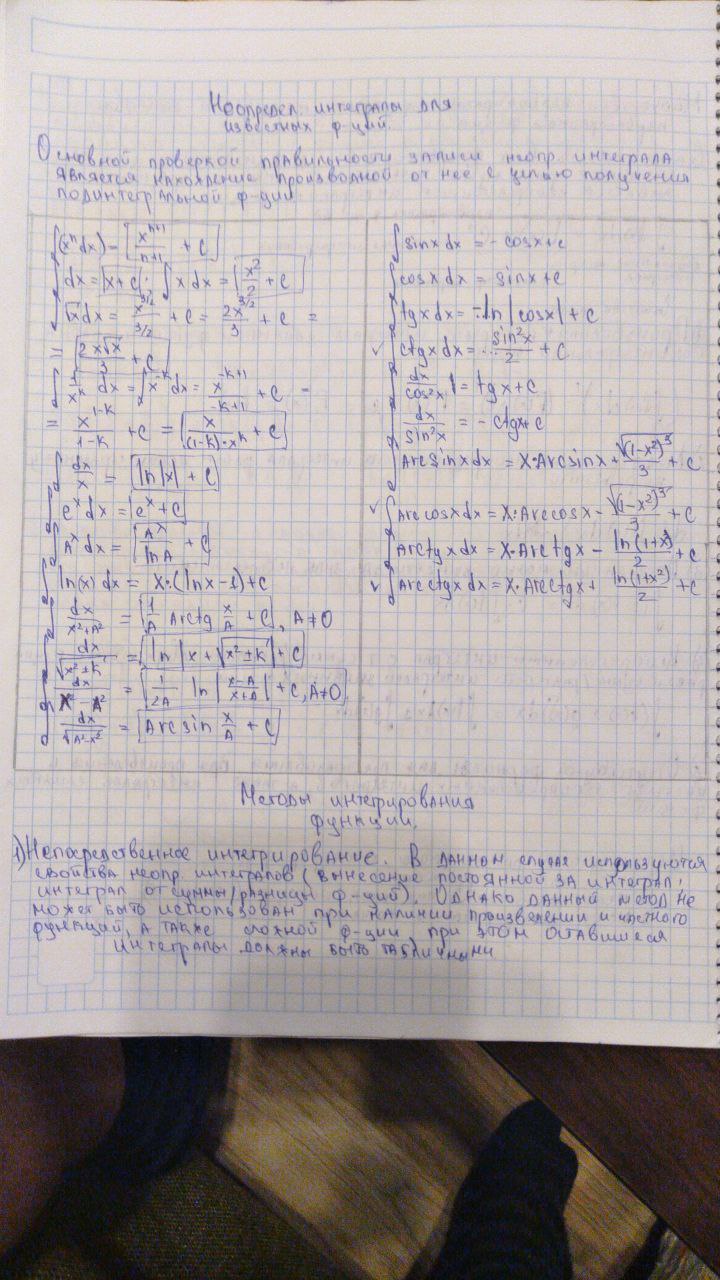 Неопредел. интегралы для
известных ф-ций.
Основной проверкой правильности записи неопр. интеграла
является нахождение производной от нее с целью получения
подинтегральной ф-ции
∫(xⁿdx) = xⁿ⁺¹/(n+1) + C
∫dx = x+C; ∫x dx = x²/2 + C
∫√x dx = x^(3/2)/(3/2) + C = 2x^(3/2)/3 + C =
= 2x√x/3 + C
∫1/x^k dx = ∫x^(-k) dx = x^(-k+1)/(-k+1) + C =
= x^(1-k)/(1-k) + C = x/((1-k)·x^k) + C
∫dx/x = ln|x| + C
∫e^x dx = e^x + C
∫A^x dx = A^x/lnA + C
∫ln(x) dx = x·(lnx-1)+C
∫dx/(x²+A²) = 1/A Arctg x/A + C, A≠0
∫dx/√(x²±k) = ln|x+√(x²±k)| + C
∫dx/(x²-A²) = 1/2A ln|(x-A)/(x+A)| + C, A≠0
∫dx/√(A²-x²) = Arcsin x/A + C
∫sinx dx = -cosx+c
∫cosx dx = sinx+C
∫tgx dx = -ln|cosx| + C
✓ ∫ctgx dx = sin²x/2 + C
∫dx/cos²x = tgx+C
∫dx/sin²x = -ctgx+C
∫Arcsinx dx = X·Arcsinx + √(1-x²)³/3 + C
✓ ∫Arccosx dx = X·Arccosx - √(1-x²)³/3 + C
∫Arctgx dx = X·Arctgx - ln(1+x²)/2 + C
✓ ∫Arcctgx dx = X·Arcctgx + ln(1+x²)/2 + C
Методы интегрирования
функции.
1) Непосредственное интегрирование. В данном случае используются
свойства неопр. интегралов (вынесение постоянной за интеграл;
интеграл от суммы/разницы ф-ций). Однако данный метод не
может быть использован при наличии произведении и частного
функций, а также сложной ф-ции при этом оставшиеся
интегралы должны быть табличными